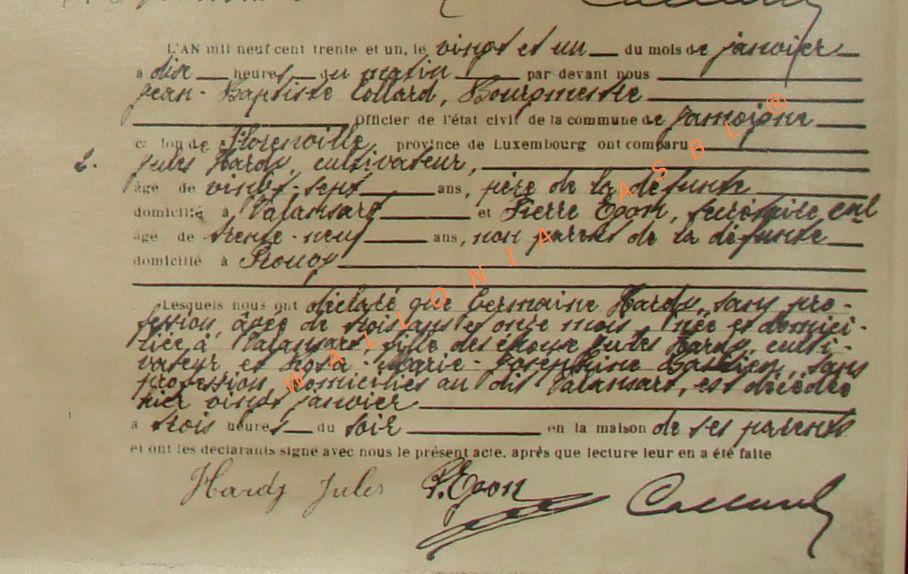 L'AN mil neuf cent trente et un, le vingt et un du mois de janvier
à dix heures du matin par devant nous
Jean-Baptiste Collard, Bourgmestre
Officier de l'état civil de la commune de Jamoigne
canton de Florenville, province de Luxembourg ont comparu
2. Jules Hardy, cultivateur,
âgé de vingt-sept ans, père de la défunte
domicilié à Valansart et Pierre Egon, secrétaire cml
âgé de trente-neuf ans, non parent de la défunte
domicilié à Prouvy
Lesquels nous ont déclaré que Germaine Hardy, sans pro-
fession, âgée de trois ans et onze mois, née et domici-
liée à Valansart, fille des époux Jules Hardy, culti-
vateur et Rosa-Marie-Joséphine, sans
profession, domiciliés au dit Valansart, est décédée
hier vingt janvier
à trois heures du soir en la maison de ses parents
et ont les déclarants signé avec nous le présent acte, après que lecture leur en a été faite
Hardy Jules P. Egon Collard
WALLONIA ASBL ®